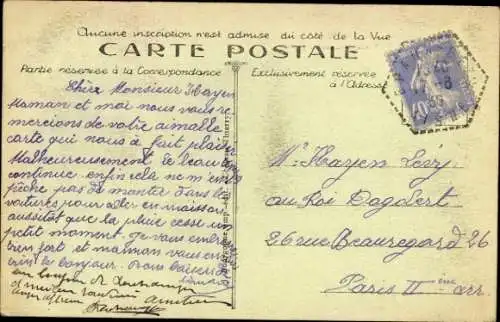 Aucune inscription n'est admise du côté de la Vue
CARTE POSTALE
Partie réservée à la Correspondance
Exclusivement réservée
à l'Adresse
Chère Monsieur Hayen
Maman et moi nous vous re
mercions de votre aimable
carte qui nous à fait plaisir
Malheureusement le beau
continue enfin cela ne m'em
pêche pas de monter dans les
voitures pour aler en maison
aussitôt que la pluie cesse un
petit moment. Je vous embra
bien fort et maman vous en
le bonjour.
un bonjour de
Mr Hayen Lévy
au Roi Dagobert
26 rue Beauregard 26
Paris IIème arr.